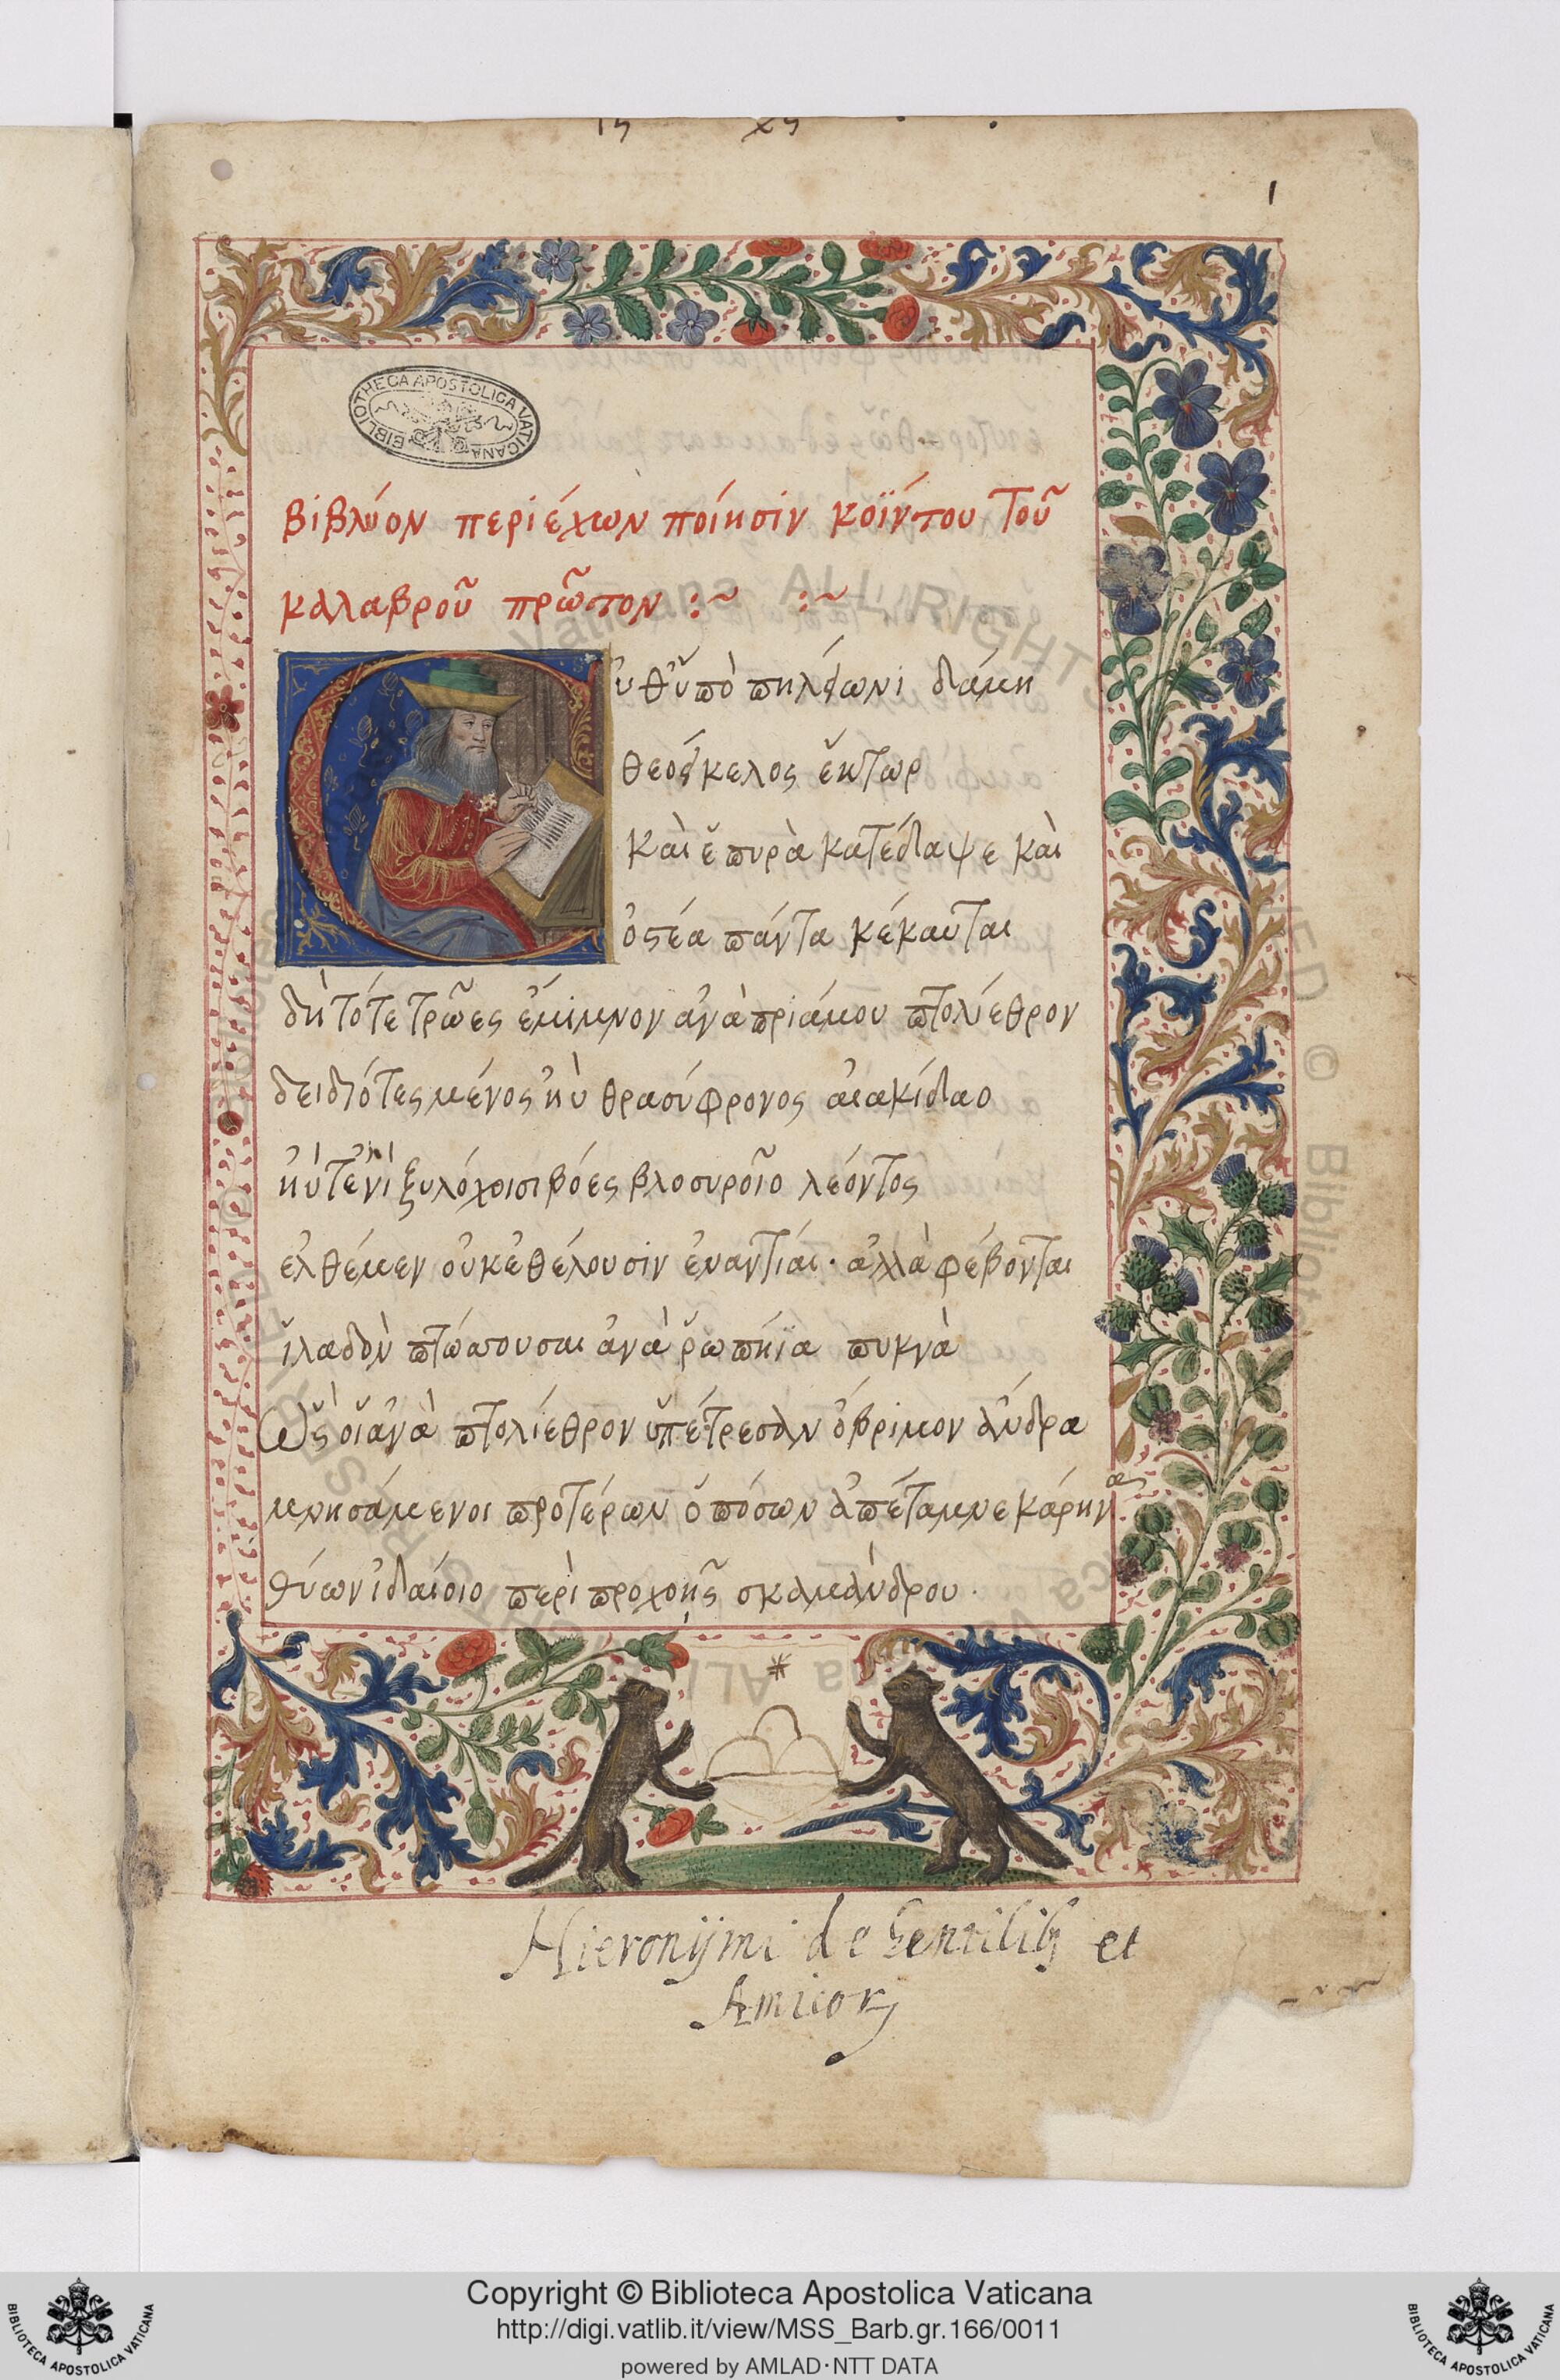 1
BIBLIOTHECA APOSTOLICA VATICANA
βιβλύον περιέχων ποίησιν κοΐντου τοῦ
καλαβροῦ πρῶτον :~ :~
ὐθ' ὑπὸ πηλείωνι δάμη
θεοείκελος ἕκτωρ
καὶ ἑ πυρὰ κατέδαψε καὶ
ὀστέα πάντα κέκαυται
δὴ τότε τρῶες ἔμιμνον ἀνὰ πριάμου πτολίεθρον
δειδιότες μένος ἠὺ θρασύφρονος αἰακίδαο
ἠύτ' ἐνὶ ξυλόχοισι βόες βλοσυροῖο λέοντος
ἐλθέμεν οὐκ ἐθέλουσιν ἐναντίαι· ἀλλὰ φέβονται
ἰλαδὸν πτώσσουσαι ἀνὰ ῥωπήϊα πυκνὰ
Ὣς οἳ ἀνὰ πτολίεθρον ὑπέτρεσαν ὄβριμον ἄνδρα
μνησάμενοι προτέρων ὁπόσων ἀπέταμνε κάρηνα
θύων ἰδαίοιο περὶ προχοῇς σκαμάνδρου.
Hieronÿmi de Gentilibꝫ et
Amicorꝫ
Copyright © Biblioteca Apostolica Vaticana
http://digi.vatlib.it/view/MSS_Barb.gr.166/0011
powered by AMLAD·NTT DATA
BIBLIOTECA APOSTOLICA VATICANA
BIBLIOTECA APOSTOLICA VATICANA